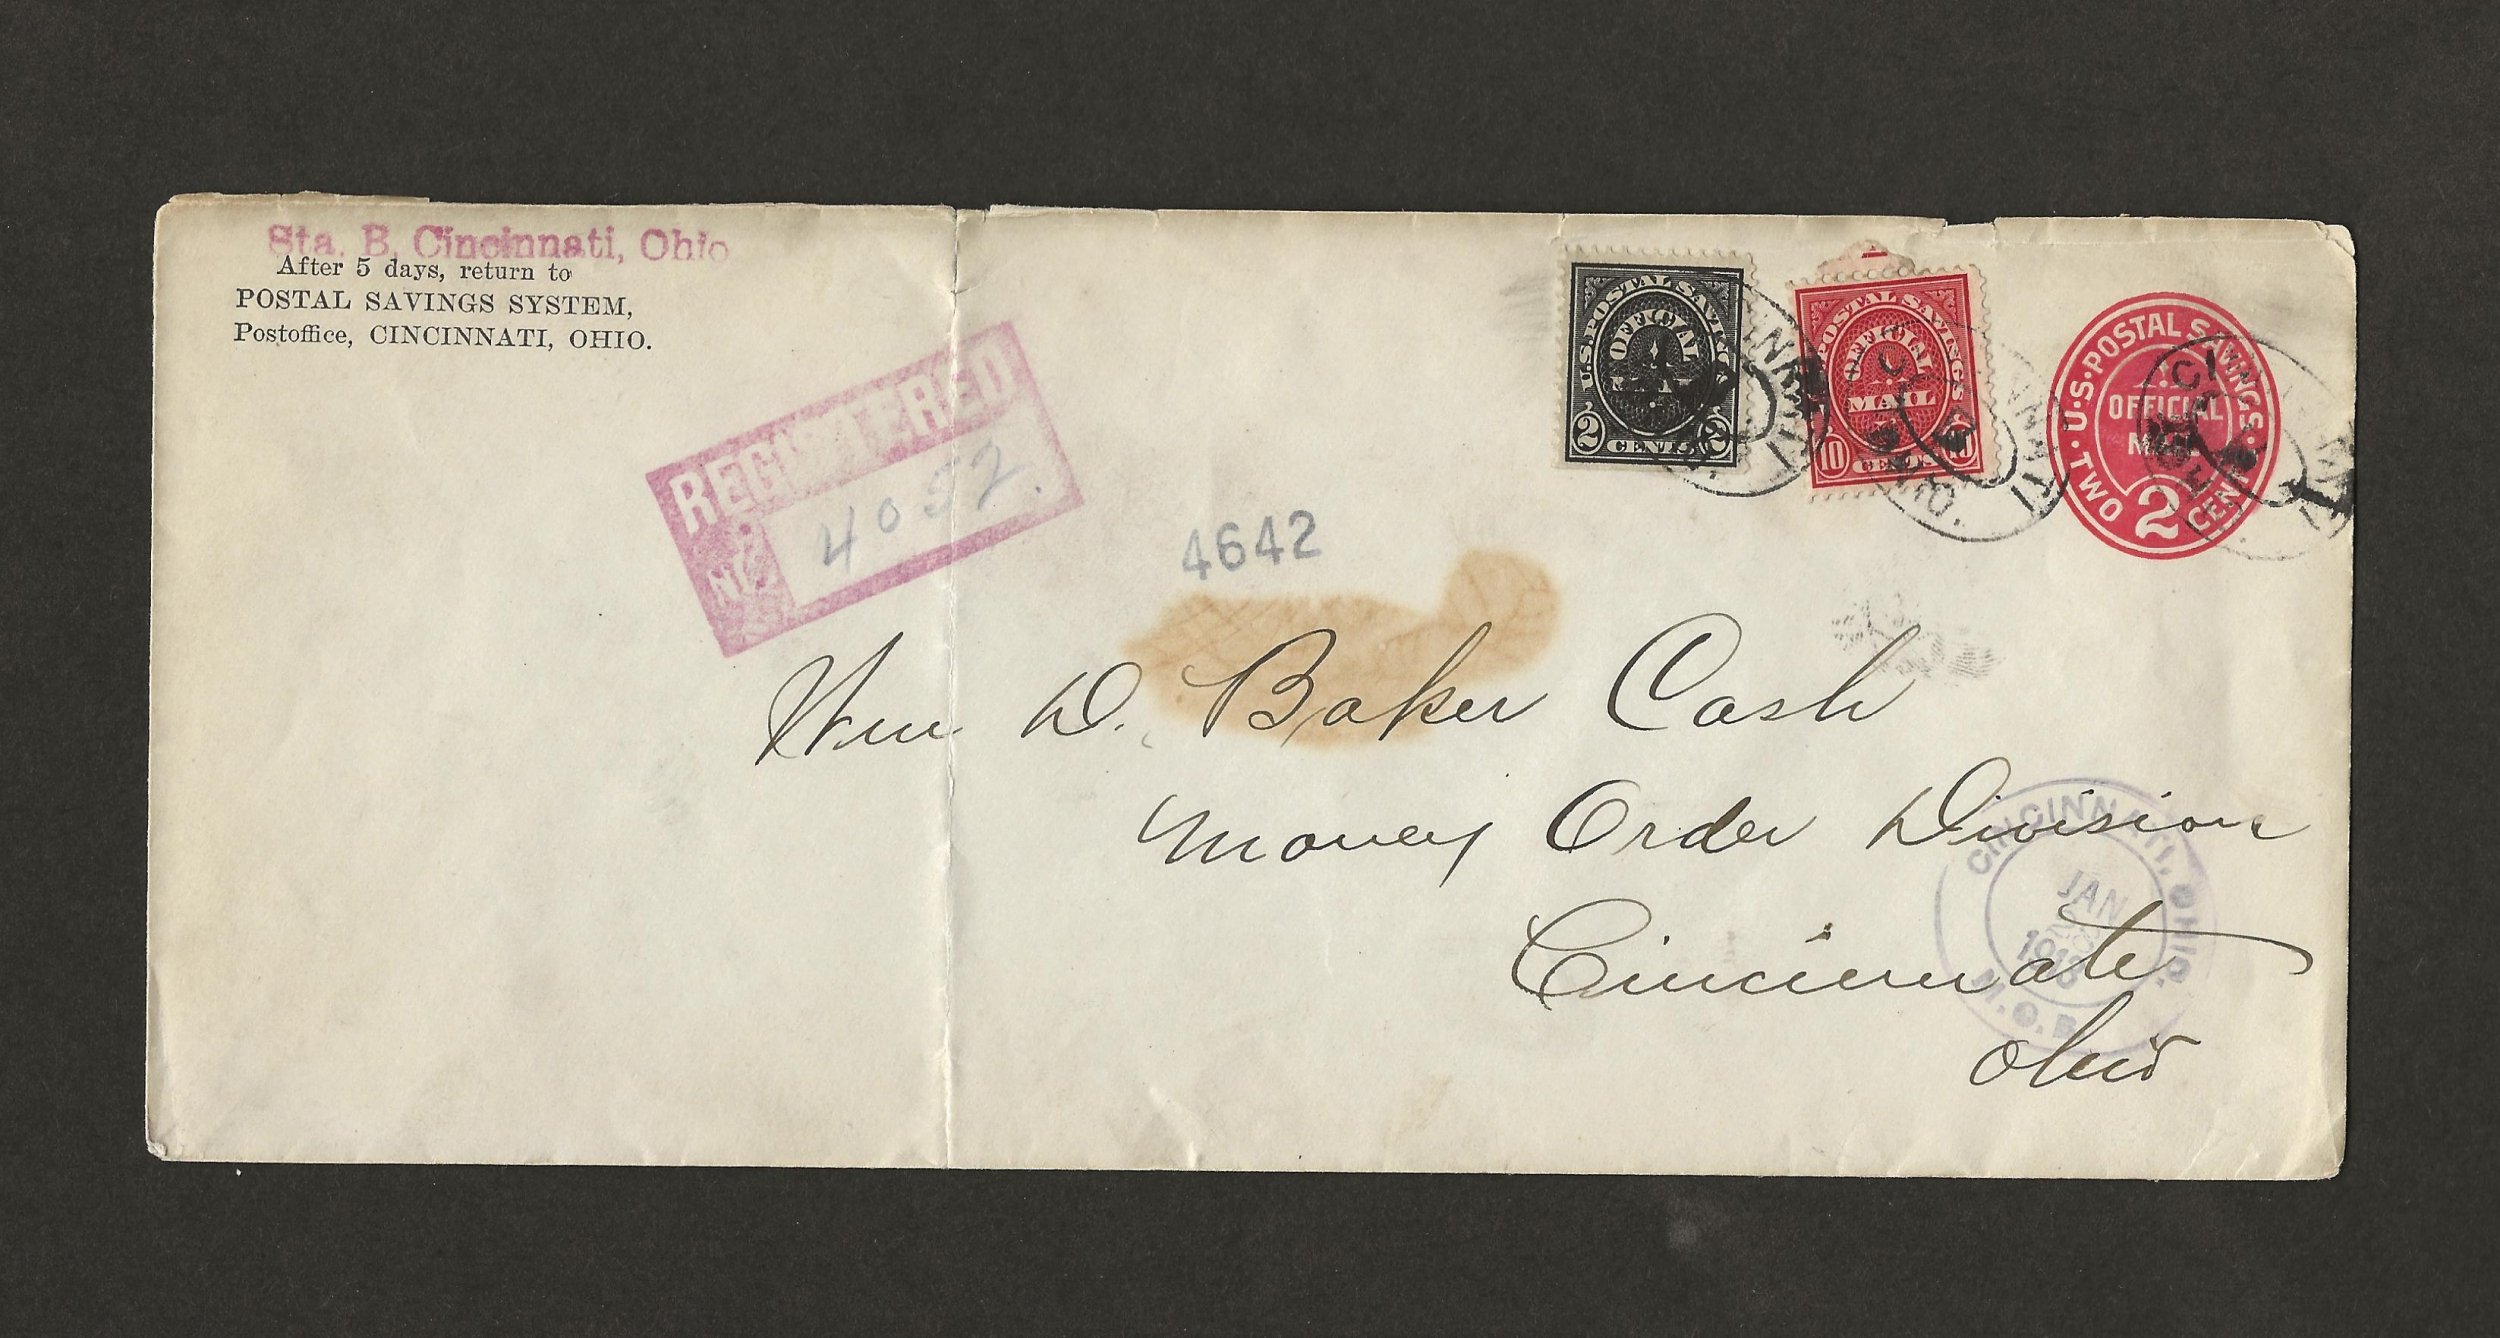 Sta. B, Cincinnati, Ohio
After 5 days, return to
POSTAL SAVINGS SYSTEM,
Postoffice, CINCINNATI, OHIO.
REGISTERED
No. 4052.
4642
U.S. POSTAL SAVINGS
OFFICIAL
MAIL
2 CENTS 2
U.S. POSTAL SAVINGS
OFFICIAL
MAIL
10 CENTS 10
U.S. POSTAL SAVINGS
OFFICIAL
MAIL
TWO 2 CENTS
Wm D. Baker Cash
Money Order Division
Cincinnati
Ohio
CINCINNATI, OHIO.
JAN
M.O.B.